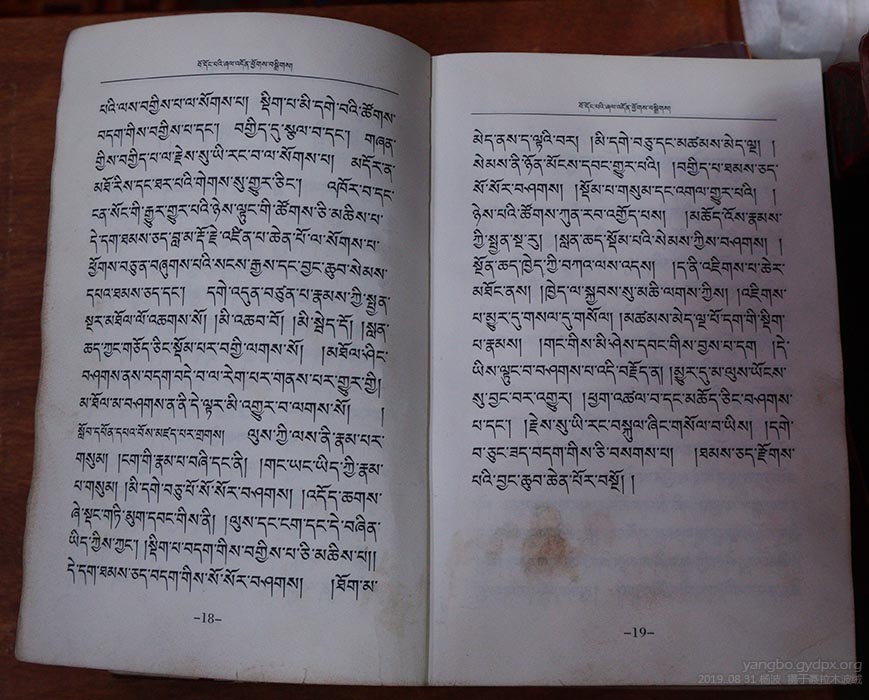 ཇོ་དོང་པའི་ཞལ་འདོན་ཕྱོགས་བསྒྲིགས།
པའི་ལས་བགྱིས་པ་ལ་སོགས་པ། སྡིག་པ་མི་དགེ་བའི་ཚོགས་
བདག་གིས་བགྱིས་པ་དང་། བགྱིད་དུ་སྩལ་བ་དང་། གཞན་
གྱིས་བགྱིད་པ་ལ་རྗེས་སུ་ཡི་རང་བ་ལ་སོགས་པ། མདོར་ན་
མཐོ་རིས་དང་ཐར་པའི་གེགས་སུ་གྱུར་ཅིང་། འཁོར་བ་དང་
ངན་སོང་གི་རྒྱུར་གྱུར་པའི་ཉེས་ལྟུང་གི་ཚོགས་ཅི་མཆིས་པ་
དེ་དག་ཐམས་ཅད་བླ་མ་རྡོ་རྗེ་འཛིན་པ་ཆེན་པོ་ལ་སོགས་པ་
ཕྱོགས་བཅུ་ན་བཞུགས་པའི་སངས་རྒྱས་དང་བྱང་ཆུབ་སེམས་
དཔའ་ཐམས་ཅད་དང་། དགེ་འདུན་བཙུན་པ་རྣམས་ཀྱི་སྤྱན་
སྔར་མཐོལ་ལོ་འཆགས་སོ། །མི་འཆབ་བོ། །མི་སྦེད་དོ། །སླན་
ཆད་ཀྱང་གཅོད་ཅིང་སྡོམ་པར་བགྱི་ལགས་སོ། །མཐོལ་ཞིང་
བཤགས་ནས་བདག་བདེ་བ་ལ་རེག་པར་གནས་པར་གྱུར་གྱི།
མ་ཐོལ་མ་བཤགས་ན་ནི་དེ་ལྟར་མི་འགྱུར་བ་ལགས་སོ། །
སློབ་དཔོན་དཔའ་བོས་མཛད་པར་གྲགས། ལུས་ཀྱི་ལས་ནི་རྣམ་པར་
གསུམ། །ངག་གི་རྣམ་པ་བཞི་དང་ནི། །གང་ཡང་ཡིད་ཀྱི་རྣམ་
པ་གསུམ། །མི་དགེ་བཅུ་པོ་སོ་སོར་བཤགས། །འདོད་ཆགས་
ཞེ་སྡང་གཏི་མུག་དབང་གིས་ནི། །ལུས་དང་ངག་དང་དེ་བཞིན་
ཡིད་ཀྱིས་ཀྱང་། །སྡིག་པ་བདག་གིས་བགྱིས་པ་ཅི་མཆིས་པ།།
དེ་དག་ཐམས་ཅད་བདག་གིས་སོ་སོར་བཤགས། །ཐོག་མ་
-18-
ཇོ་དོང་པའི་ཞལ་འདོན་ཕྱོགས་བསྒྲིགས།
མེད་ནས་ད་ལྟའི་བར། །མི་དགེ་བཅུ་དང་མཚམས་མེད་ལྔ། །
སེམས་ནི་ཉོན་མོངས་དབང་གྱུར་པའི། །བགྱིད་པ་ཐམས་ཅད་
སོ་སོར་བཤགས། །སྡོམ་པ་གསུམ་དང་འགལ་གྱུར་པའི། །
ཉེས་པའི་ཚོགས་ཀུན་རབ་འགྱོད་པས། །མཆོད་འོས་རྣམས་
ཀྱི་སྤྱན་སྔ་རུ། །སླན་ཆད་སྡོམ་པའི་སེམས་ཀྱིས་བཤགས། །
སྔོན་ཆད་ཁྱེད་ཀྱི་བཀའ་ལས་འདས། །ད་ནི་འཇིགས་པ་ཆེར་
མཐོང་ནས། །ཁྱེད་ལ་སྐྱབས་སུ་མཆི་ལགས་ཀྱིས། །འཇིགས་
པ་མྱུར་དུ་གསལ་དུ་གསོལ། །མཚམས་མེད་ལྔ་པོ་དག་གི་སྡིག་
པ་རྣམས། །གང་གིས་མི་ཤེས་དབང་གིས་བྱས་པ་དག །དེ་
ཡིས་ལྟུང་བ་བཤགས་པ་འདི་བརྗོད་ན། །མྱུར་དུ་མ་ལུས་ཡོངས་
སུ་བྱང་བར་འགྱུར། །ཕྱག་འཚལ་བ་དང་མཆོད་ཅིང་བཤགས་
པ་དང་། །རྗེས་སུ་ཡི་རང་བསྐུལ་ཞིང་གསོལ་བ་ཡིས། །དགེ་
བ་ཅུང་ཟད་བདག་གིས་ཅི་བསགས་པ། །ཐམས་ཅད་རྫོགས་
པའི་བྱང་ཆུབ་ཆེན་པོར་བསྔོ། །
-19-
yangbo.gydpx.org
2019. 08 31 杨波 摄于赛拉木波城